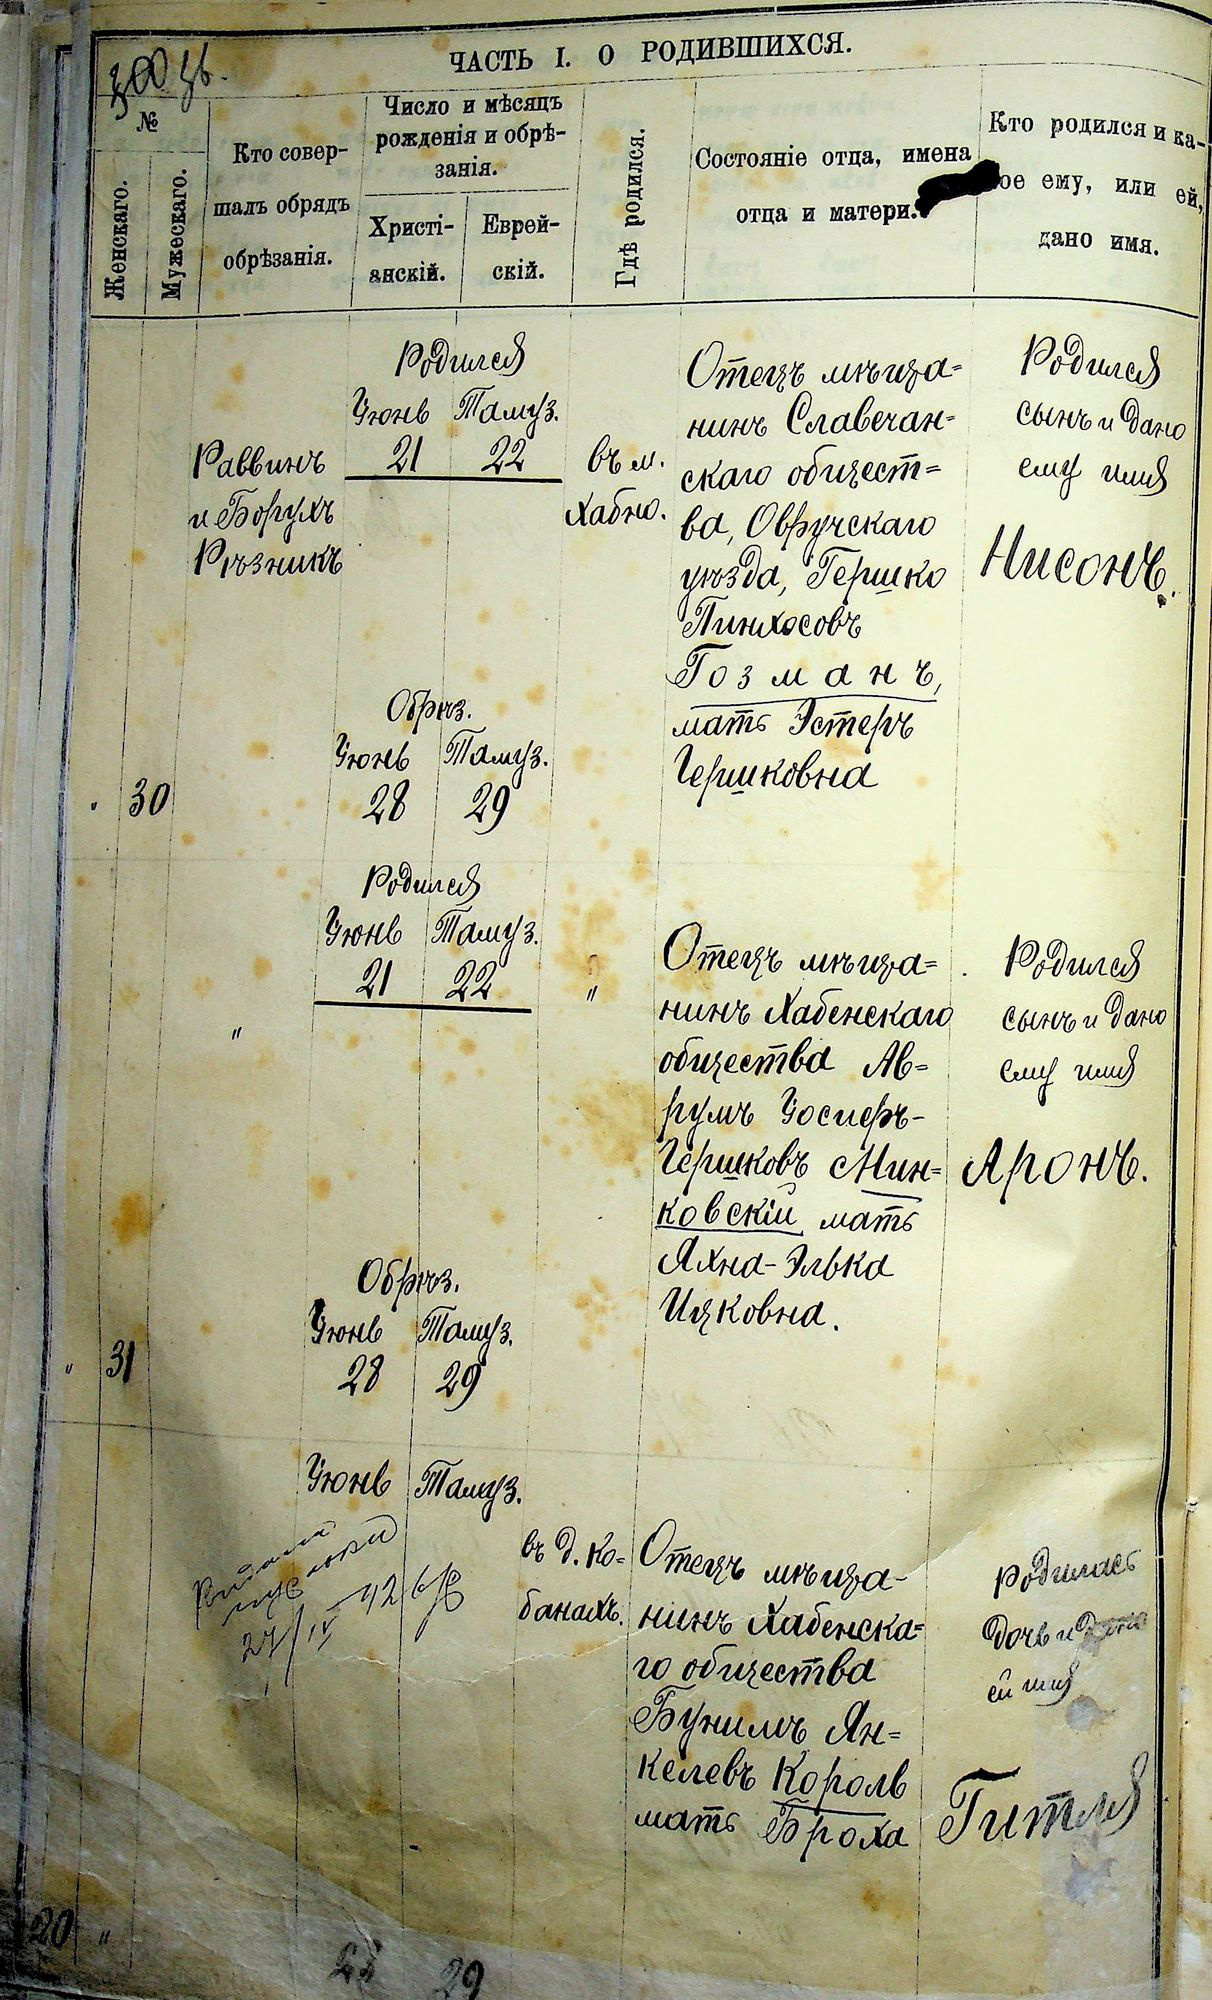 ЧАСТЬ I. О РОДИВШИХСЯ.
№
Женскаго.
Мужескаго.
Кто совер-
шалъ обрядъ
обрѣзанія.
Число и мѣсяцъ
рожденія и обрѣ-
занія.
Христі-
анскій.
Еврей-
скій.
Гдѣ родился.
Состояніе отца, имена
отца и матери.
Кто родился и ка-
ое ему, или ей,
дано имя.
30
Раввинъ
и Борухъ
Рѣзникъ
Родился
Іюнь Тамуз.
21 22
Обрѣз.
Іюнь Тамуз.
28 29
въ м.
Хабно.
Отецъ мѣща=
нинъ Славечан=
скаго общест=
ва, Овручскаго
уѣзда, Гершко
Пинхосовъ
Гозманъ,
мать Эстеръ
Гершковна
Родился
сынъ и дано
ему имя
Нисонъ.
" 31
"
Родился
Іюнь Тамуз.
21 22
Обрѣз.
Іюнь Тамуз.
28 29
"
Отецъ мѣща=
нинъ Хабенскаго
общества Ав=
румъ Іосиеръ-
Гершковъ Мин=
ковскій мать
Яхна-Элька
Ицковна.
Родился
сынъ и дано
ему имя
Аронъ.
20 "
Іюнь Тамуз.
28 29
въ д. Ко=
банахъ.
Отецъ мѣща-
нинъ Хабенска=
го общества
Бунимъ Ян=
келевъ Король
мать Броха
Родилась
дочь и дано
ей имя
Гитля